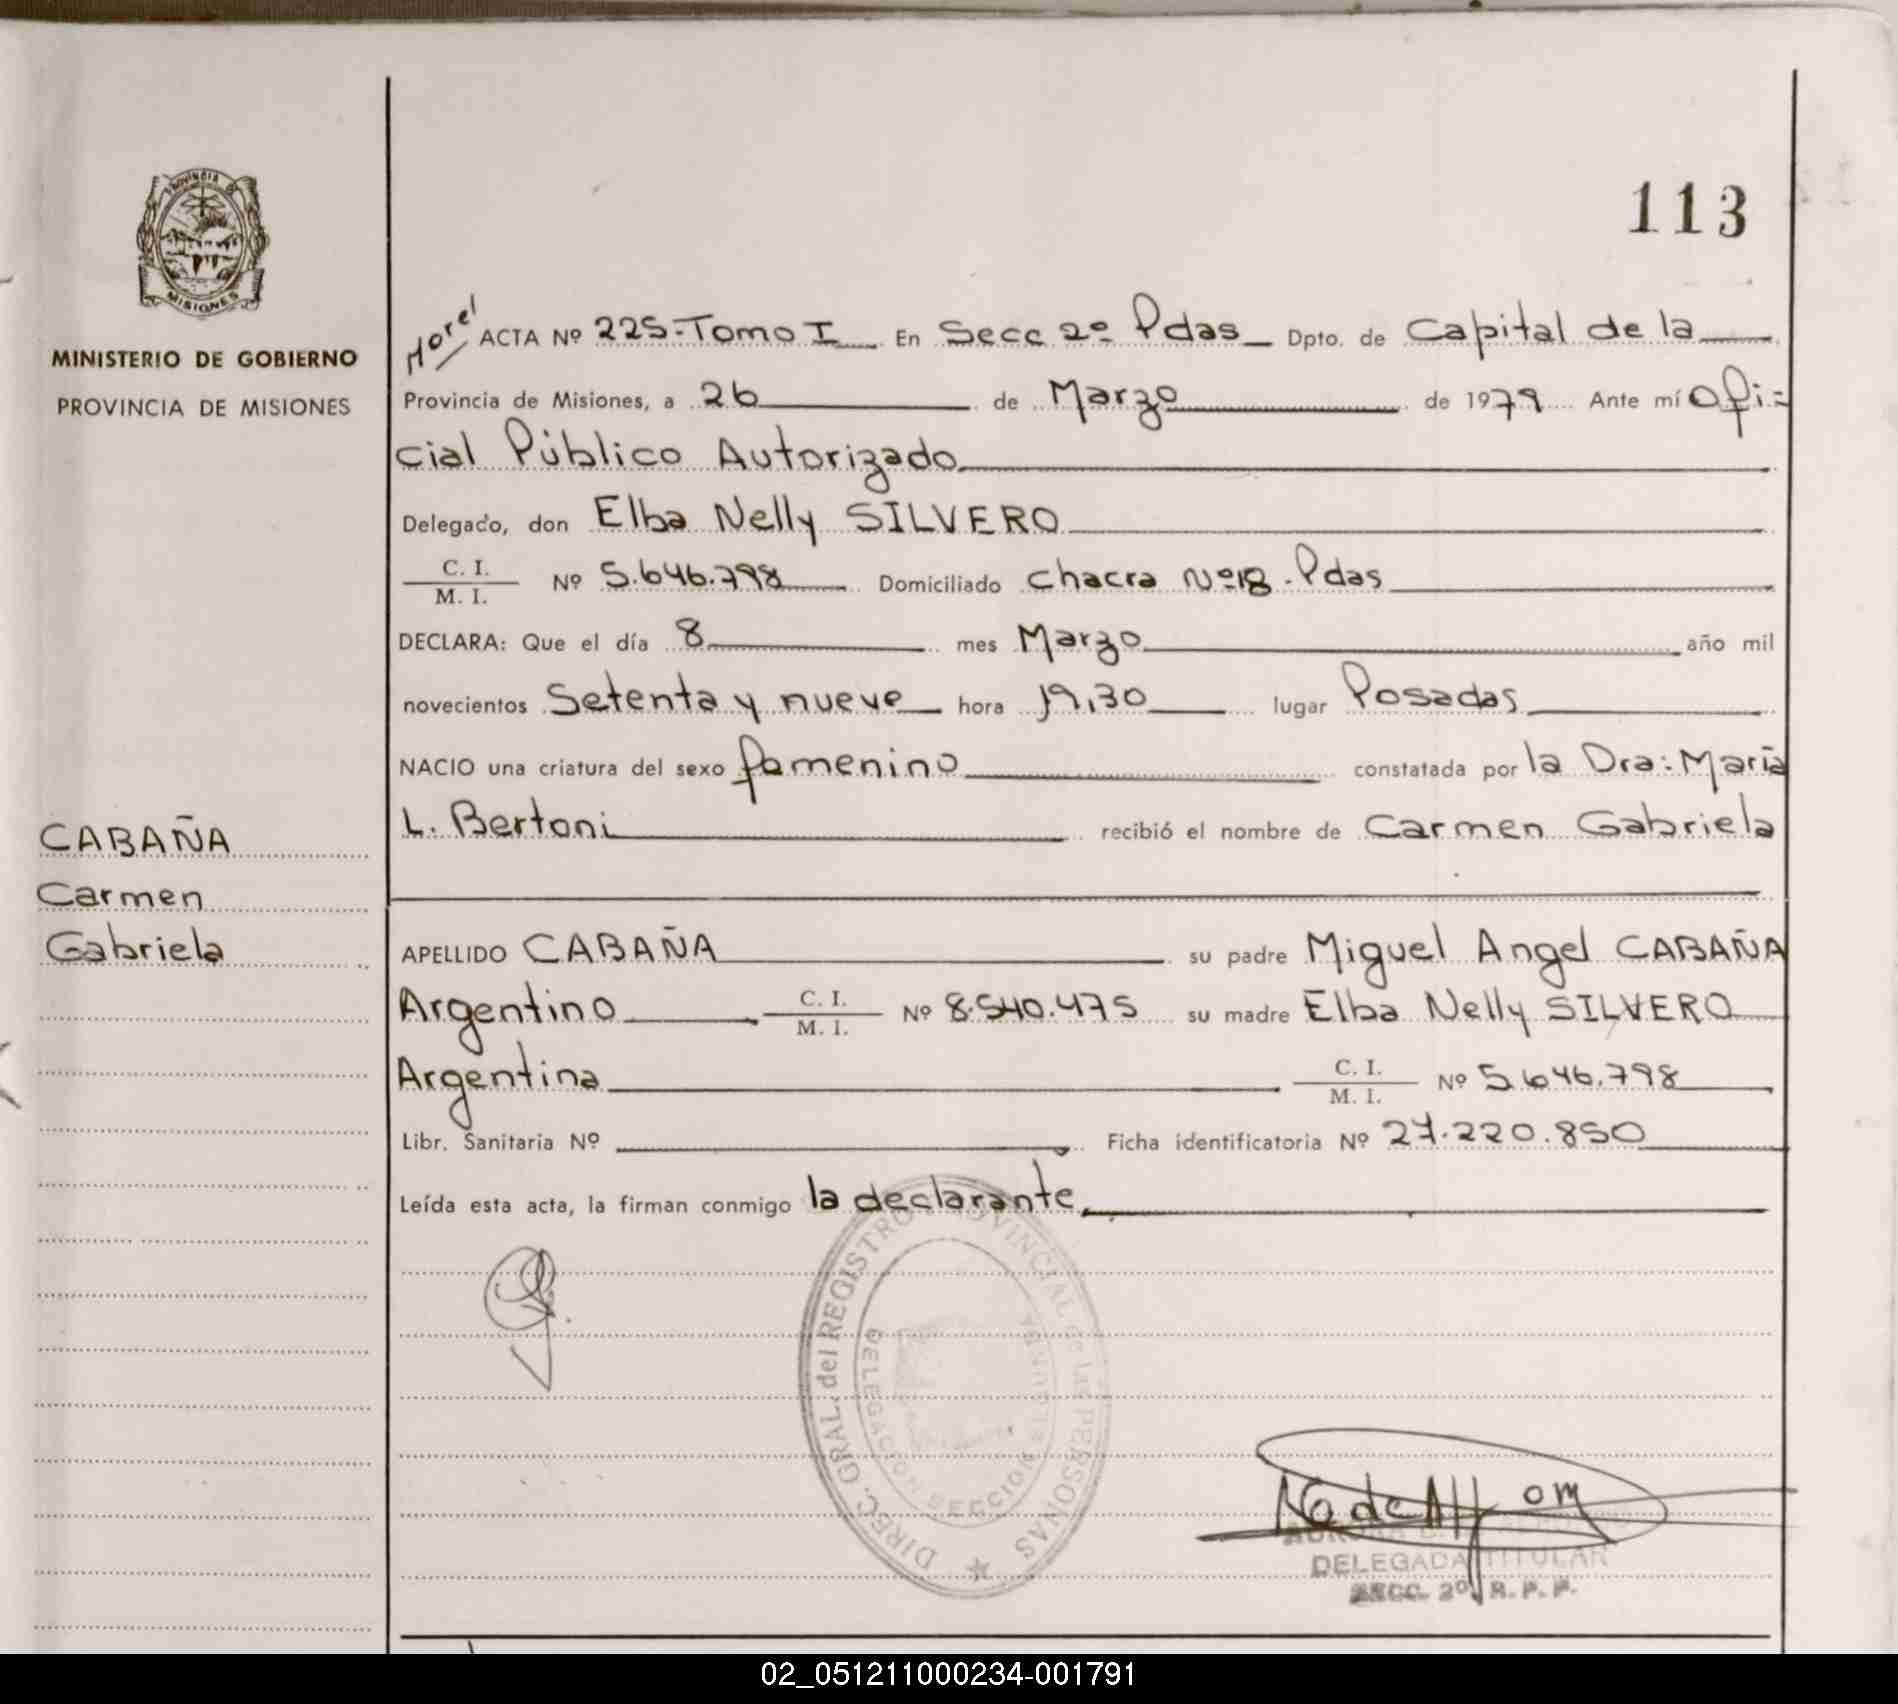 PROVINCIA D
MISIONES
MINISTERIO DE GOBIERNO
PROVINCIA DE MISIONES
113
Morel ACTA Nº 225-Tomo I En Secc 2º Pdas Dpto. de Capital de la
Provincia de Misiones, a 26 de Marzo de 1979 Ante mí Ofi=
cial Público Autorizado
Delegado, don Elba Nelly SILVERO
C. I.
M. I. Nº 5.646.798 Domiciliado Chacra Nº18. Pdas
DECLARA: Que el día 8 mes Marzo año mil
novecientos Setenta y nueve hora 19,30 lugar Posadas
NACIO una criatura del sexo femenino constatada por la Dra: María
L. Bertoni recibió el nombre de Carmen Gabriela
CABAÑA
Carmen
Gabriela
APELLIDO CABAÑA su padre Miguel Angel CABAÑA
Argentino C. I.
M. I. Nº 8.540.475 su madre Elba Nelly SILVERO
Argentina C. I.
M. I. Nº 5.646.798
Libr. Sanitaria Nº Ficha identificatoria Nº 27.220.850
Leída esta acta, la firman conmigo la declarante,
DIREC. GRAL. del REGISTRO PROVINCIAL de las PERSONAS
DELEGACION SECCION
DELEGADA TITULAR
SECC. 2º R. P. P.
02_051211000234-001791